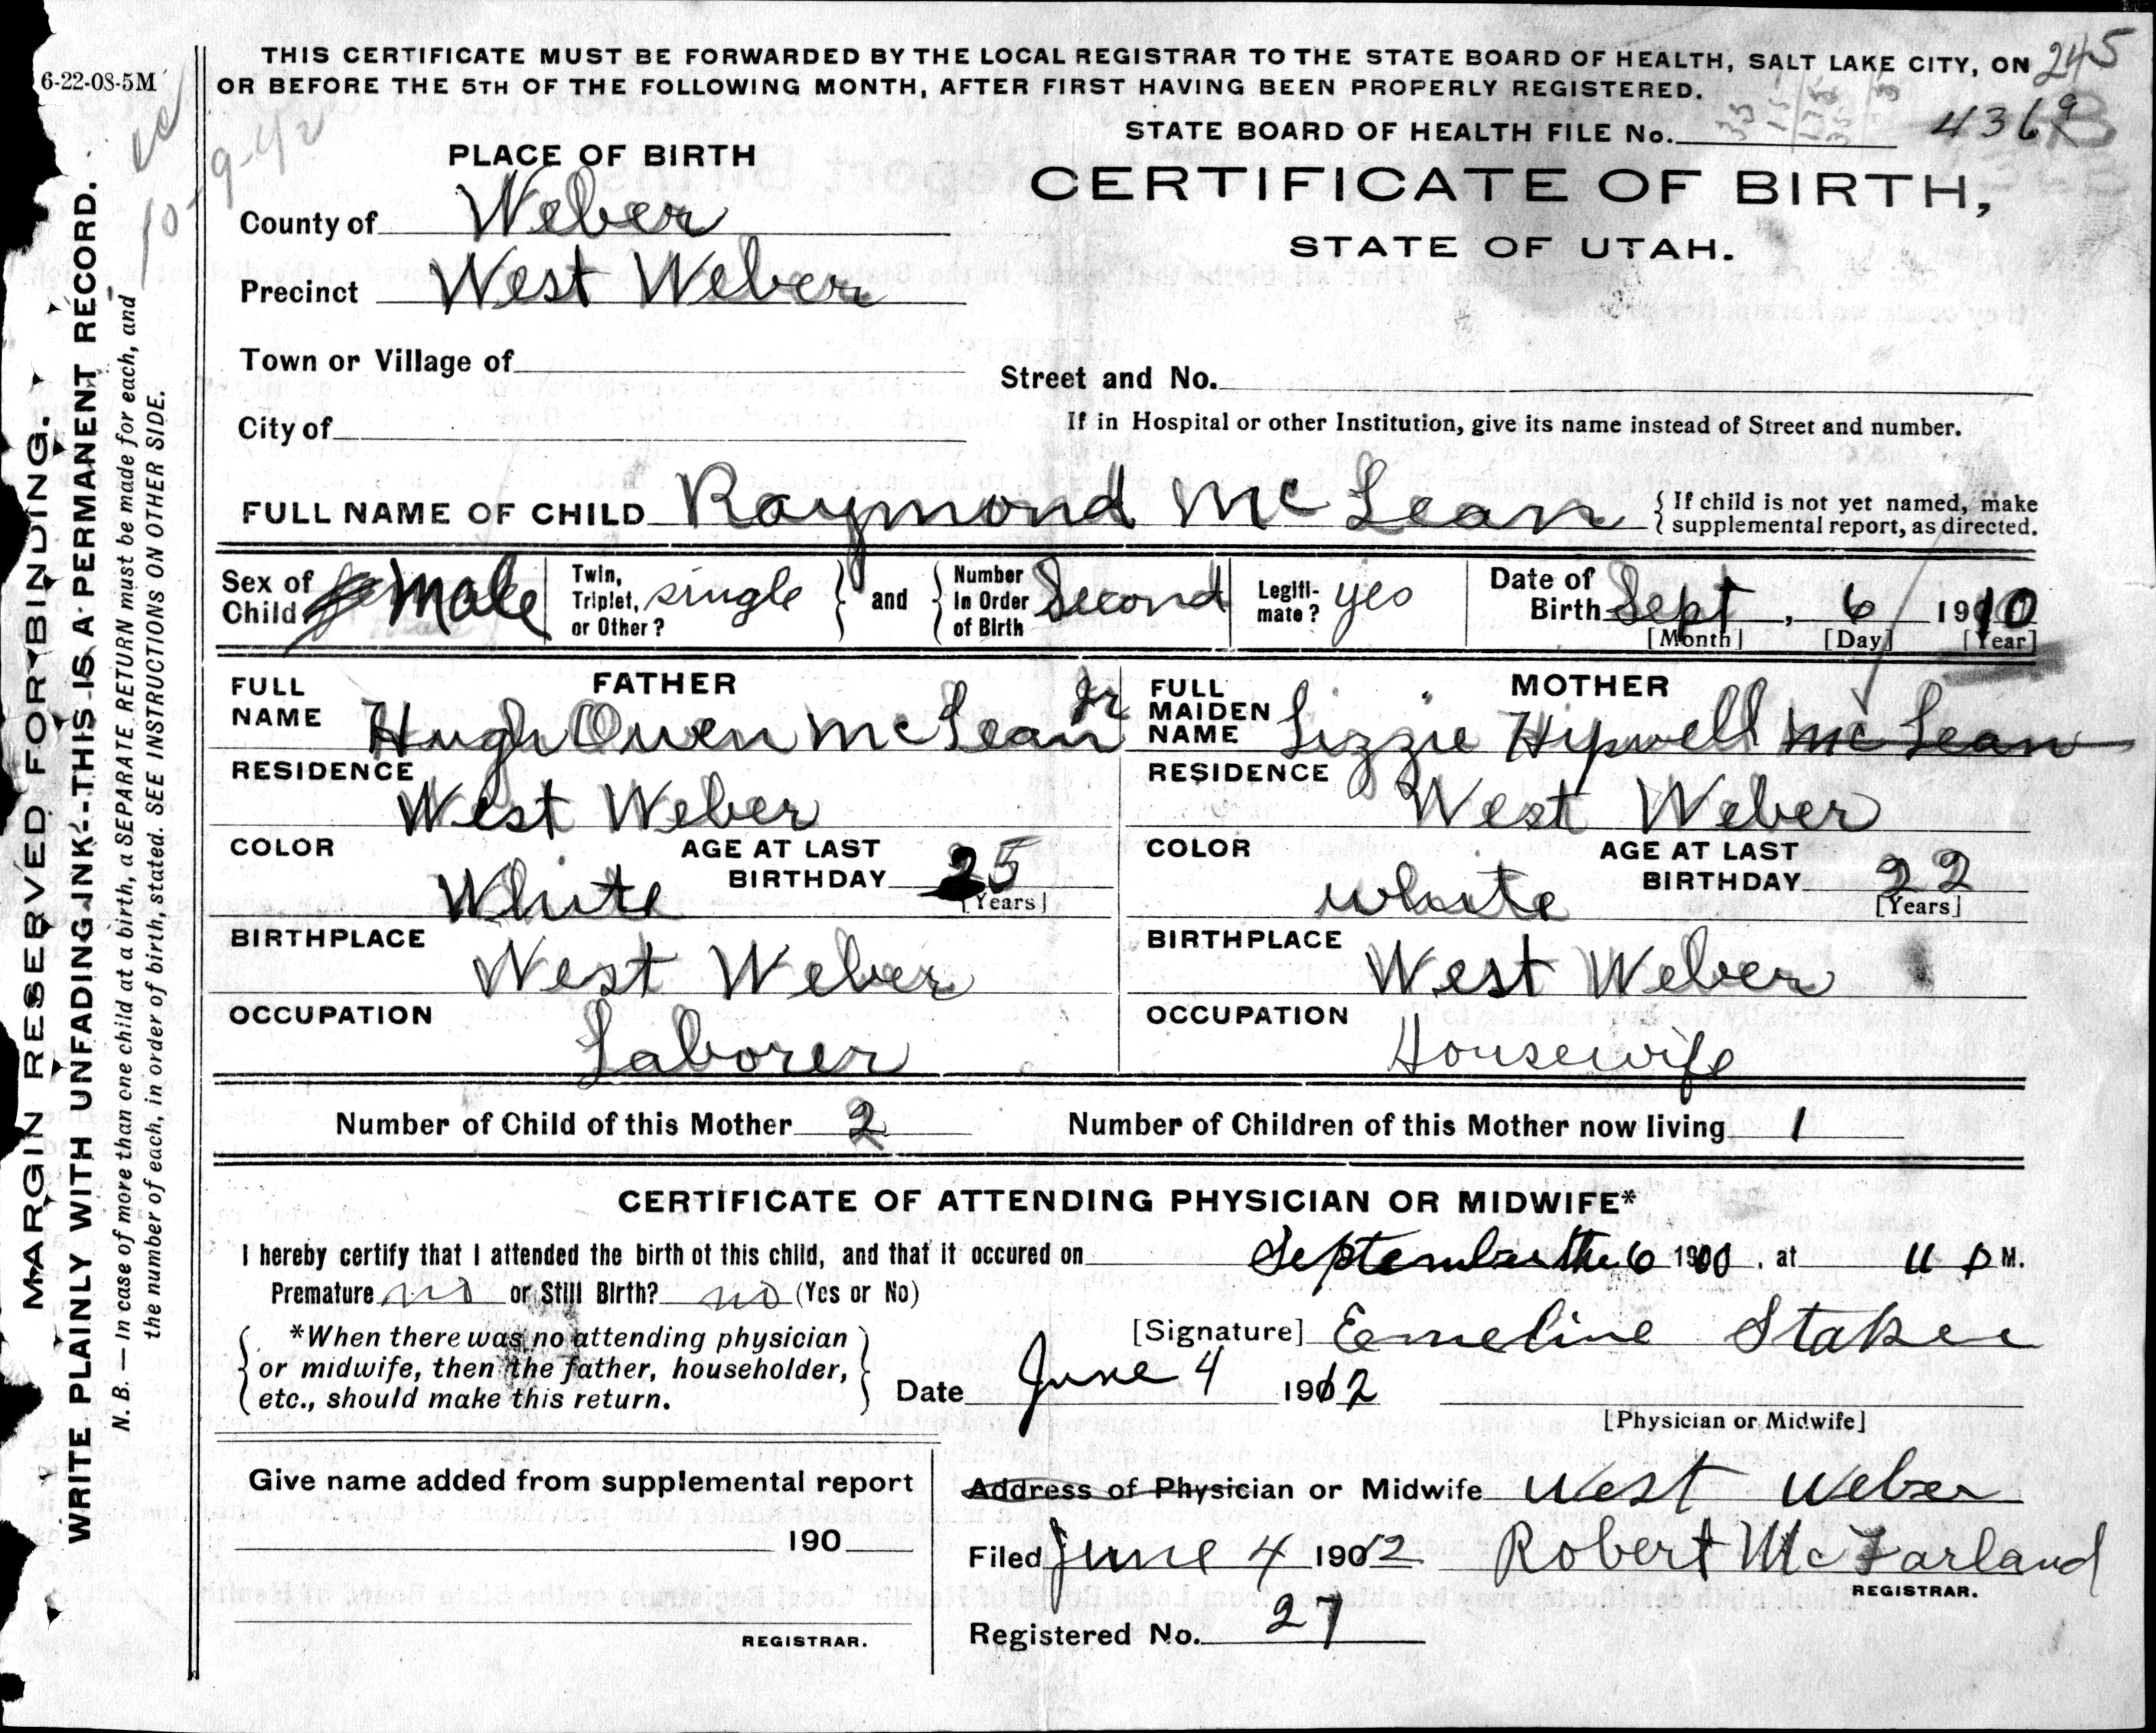 6-22-08-5M
THIS CERTIFICATE MUST BE FORWARDED BY THE LOCAL REGISTRAR TO THE STATE BOARD OF HEALTH, SALT LAKE CITY, ON
OR BEFORE THE 5TH OF THE FOLLOWING MONTH, AFTER FIRST HAVING BEEN PROPERLY REGISTERED.
245
STATE BOARD OF HEALTH FILE No. 4369
10-9-42
PLACE OF BIRTH
CERTIFICATE OF BIRTH,
STATE OF UTAH.
County of Weber
Precinct West Weber
Town or Village of
Street and No.
City of
If in Hospital or other Institution, give its name instead of Street and number.
FULL NAME OF CHILD Raymond McLean
{ If child is not yet named, make
{ supplemental report, as directed.
Sex of Child male
Twin, Triplet, or Other? single } and { Number In Order of Birth Second
Legiti-mate? yes
Date of Birth Sept, 6 1910
[Month] [Day] [Year]
FATHER
FULL NAME Hugh Owen McLean Jr
RESIDENCE
West Weber
COLOR White
AGE AT LAST BIRTHDAY 25
[Years]
BIRTHPLACE
West Weber
OCCUPATION
Laborer
MOTHER
FULL MAIDEN NAME Lizzie Hipwell McLean
RESIDENCE
West Weber
COLOR white
AGE AT LAST BIRTHDAY 22
[Years]
BIRTHPLACE
West Weber
OCCUPATION
Housewife
Number of Child of this Mother 2 Number of Children of this Mother now living 1
CERTIFICATE OF ATTENDING PHYSICIAN OR MIDWIFE*
I hereby certify that I attended the birth of this child, and that it occured on September the 6 1910, at 11 P M.
Premature no or Still Birth? no (Yes or No)
*When there was no attending physician
or midwife, then the father, householder,
etc., should make this return.
[Signature] Emeline Staker
Date June 4 1912
[Physician or Midwife]
Give name added from supplemental report
190
REGISTRAR.
Address of Physician or Midwife West Weber
Filed June 4 1912 Robert McFarland
REGISTRAR.
Registered No. 27
MARGIN RESERVED FOR BINDING.
WRITE PLAINLY WITH UNFADING INK--THIS IS A PERMANENT RECORD.
N. B. — In case of more than one child at a birth, a SEPARATE RETURN must be made for each, and
the number of each, in order of birth, stated. SEE INSTRUCTIONS ON OTHER SIDE.